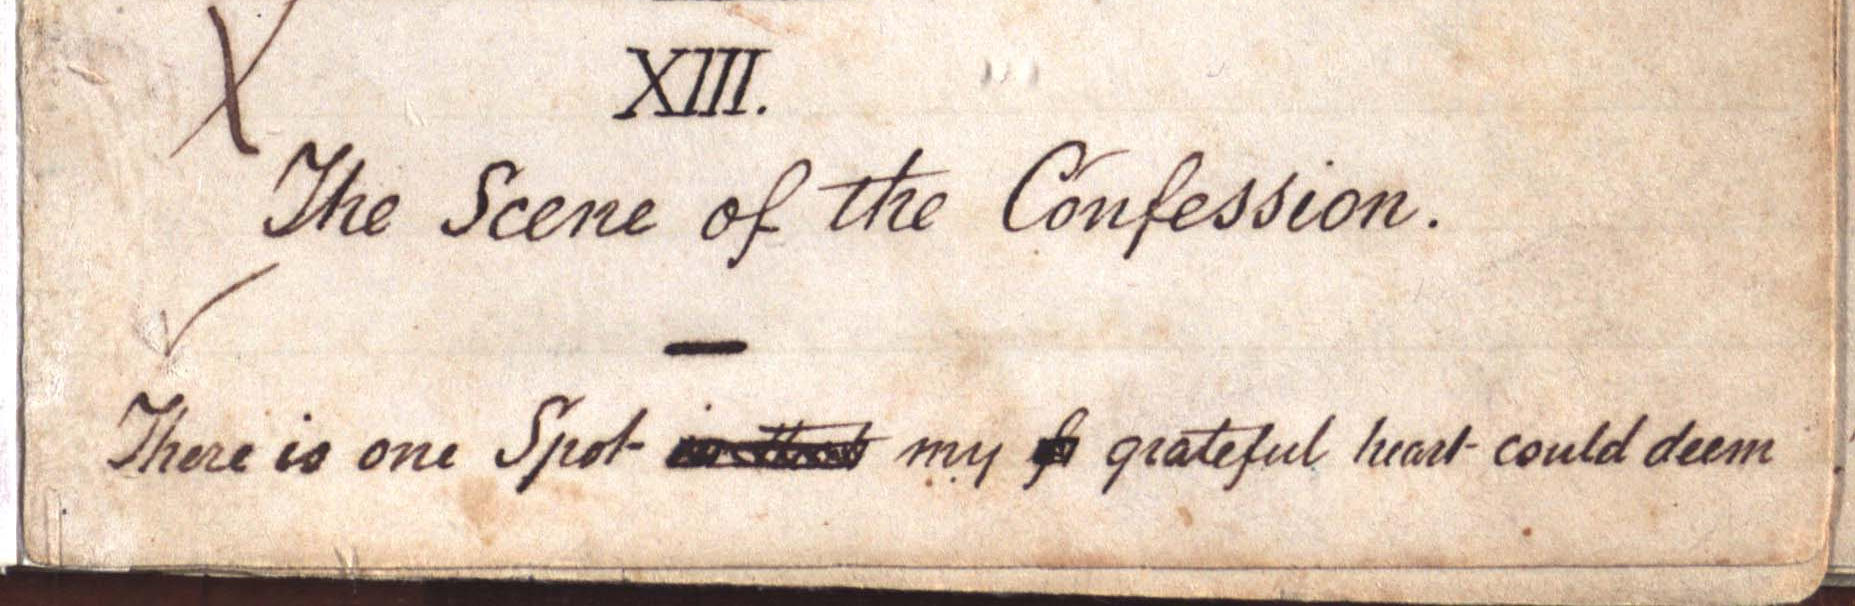 XIII.
The Scene of the Confession.
There is one Spot my grateful heart could deem